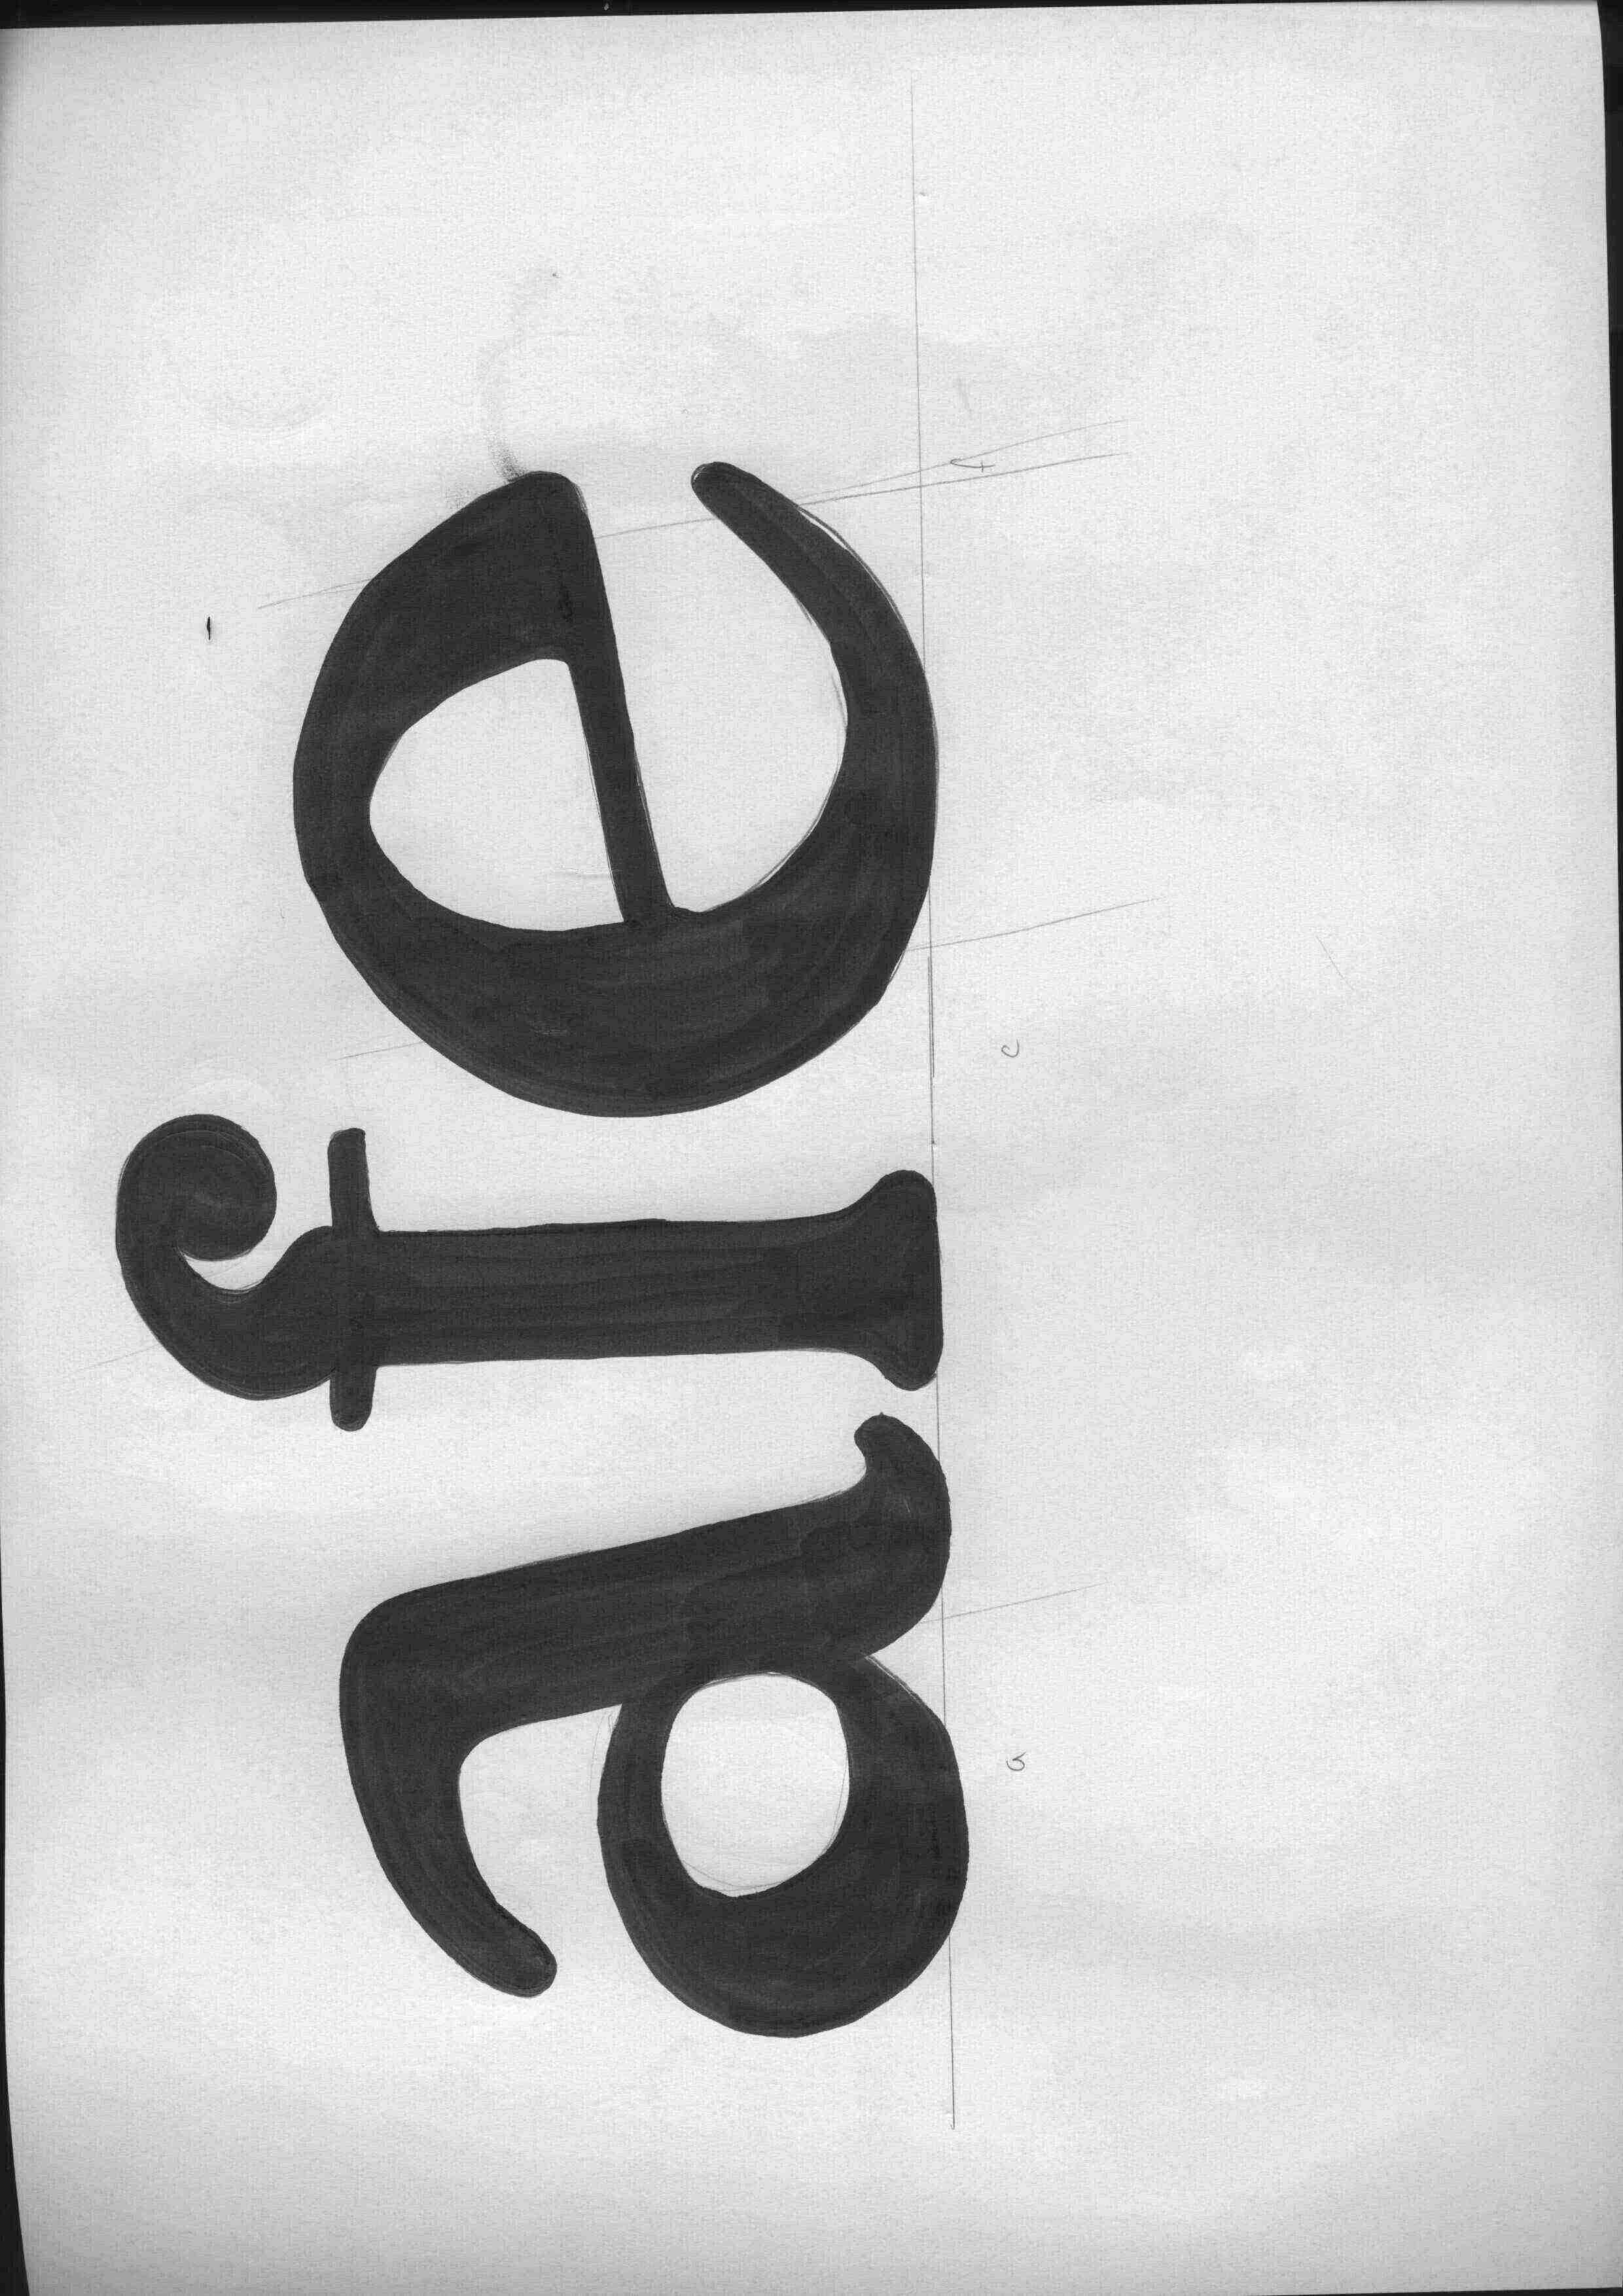 afe
a e f